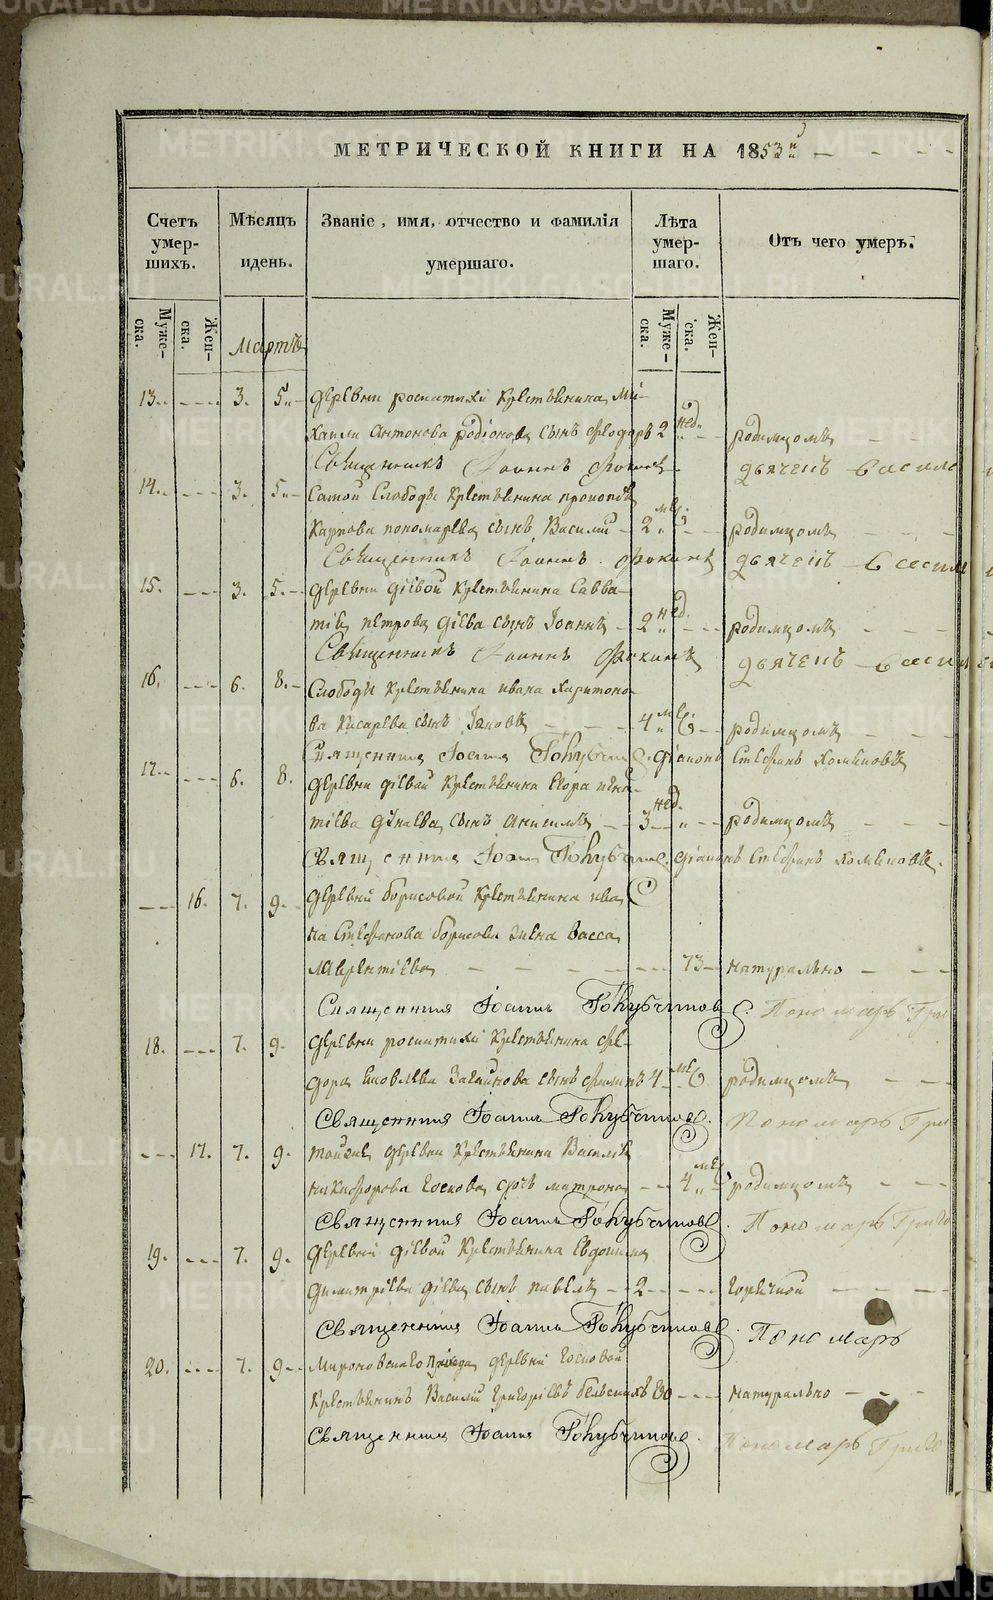 МЕТРИЧЕСКОЙ КНИГИ НА 1853й
Счетъ умер-шихъ.
Мѣсяцъ и день.
Званіе, имя, отчество и фамилія умершаго.
Лѣта умер-шаго.
Отъ чего умеръ.
Муже-ска.
Жен-ска.
Мартъ
Муже-ска.
Жен-ска.
13. 3. 5. деревни роспутихи крестьянина Ми-
хаила Антонова родіонова сынъ Феодоръ 2 нед. родимцомъ
Священникъ Іоаннъ Фокинъ дьячекъ Васил
14. 3. 5. Самой Слободы крестьянина прокопія
Карпова пономарева сынъ Василій 2 мес. родимцомъ
Священникъ Іоаннъ Фокинъ дьячекъ Васил
15. 3. 5. деревни діевой крестьянина Савва-
тія петрова діева сынъ Іоаннъ 2 нед. родимцомъ
Священникъ Іоаннъ Фокинъ дьячекъ Васил
16. 6. 8. Слободы крестьянина ивана харитоно-
ва Писарева сынъ Іяковъ 4 мес. родимцомъ
Священникъ Іоаннъ Голубчиковъ діаконъ Стефанъ Хомяковъ
17. 6. 8. деревни діевой крестьянина Егора игна-
тіева дунаева сынъ Анисимъ 3 нед. родимцомъ
Священникъ Іоаннъ Голубчиковъ діаконъ Стефанъ Хомяковъ.
16. 7. 9. деревни борисовой крестьянина ива
на Стефанова борисова жена Васса
лаврентіева 73 натурально
Священникъ Іоаннъ Голубчиковъ Пономарь Григ
18. 7. 9. деревни роспутихи крестьянина фе-
дора Яковлева сынъ филипъ 4 мес. родимцомъ
Священникъ Іоаннъ Голубчиковъ Пономарь Григ
17. 7. 9. тойже деревни крестьянина Василія
никифорова Госкова дочь матрона 4 мес. родимцомъ
Священникъ Іоаннъ Голубчиковъ Пономарь Григо
19. 7. 9. деревни діевой крестьянина Евдокима
димитріева діева сынъ павелъ 2 горячкой
Священникъ Іоаннъ Голубчиковъ Пономарь
20. 7. 9. Мироновскаго прихода деревни Госковой
крестьянинъ Василій григоріевъ 80 натурально
Священникъ Іоаннъ Голубчиковъ Пономарь Григо
METRIKI.GASO-URAL.RU